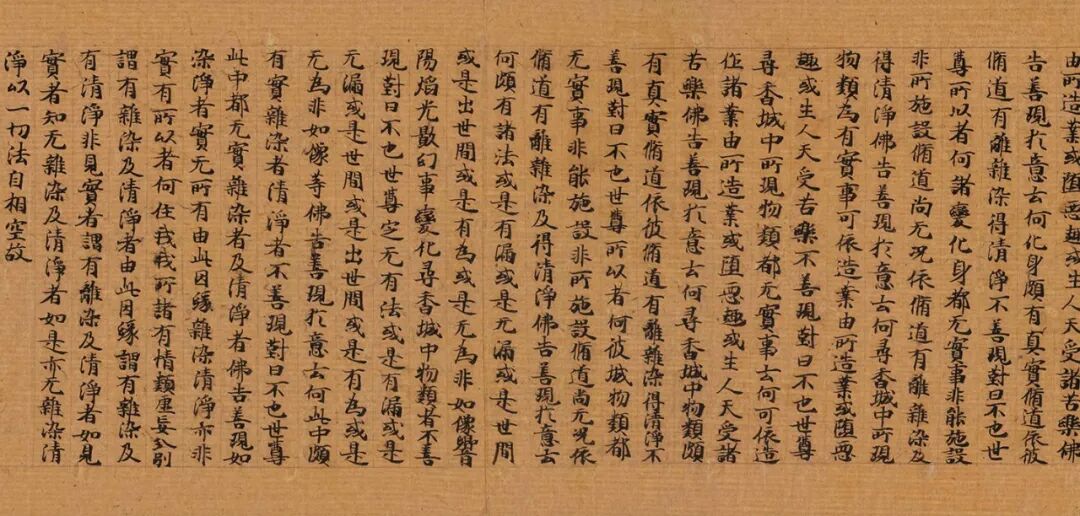 由所造業或墮惡趣或生人天受諸苦樂佛
告善現於意云何化身頗有真實脩道依彼
脩道有離雜染得清淨不善現對曰不也世
尊所以者何諸變化身都无實事非能施設
非所施設脩道尚无況依脩道有離雜染及
得清淨佛告善現於意云何尋香城中所現
物類為有實事可依造業由所造業或墮惡
趣或生人天受苦樂不善現對曰不也世尊
尋香城中所現物類都无實事云何可依造
作諸業由所造業或墮惡趣或生人天受諸
苦樂佛告善現於意云何尋香城中物類頗
有真實脩道依彼脩道有離雜染得清淨不
善現對曰不也世尊所以者何彼城物類都
无實事非能施設非所施設脩道尚无況依
脩道有離雜染及得清淨佛告善現於意云
何頗有諸法或是有漏或是无漏或是世間
或是出世間或是有為或是无為非如像響
陽焰光影幻事變化尋香城中物類者不善
現對曰不也世尊定无有法或是有漏或是
无漏或是世間或是出世間或是有為或是
无為非如像等佛告善現於意云何此中頗
有實雜染者清淨者不善現對曰不也世尊
此中都无實雜染者及清淨者佛告善現如
染淨者實无所有由此因緣雜染清淨亦非
實有所以者何住我我所諸有情類虛妄分別
謂有雜染及清淨者由此因緣謂有雜染及
有清淨非見實者謂有雜染及清淨者如見
實者知无雜染及清淨者如是亦无雜染清
淨以一切法自相空故